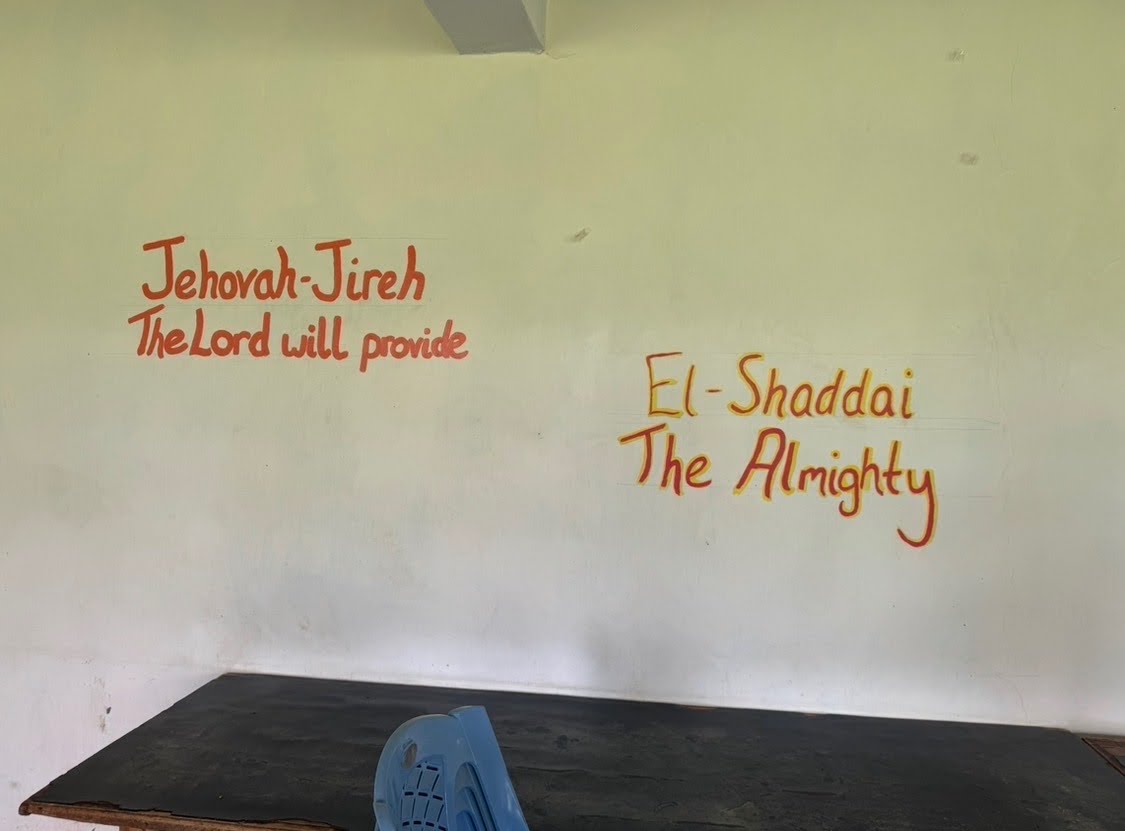 Jehovah-Jireh
The Lord will provide
El-Shaddai
The Almighty